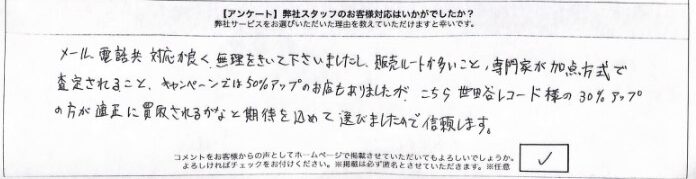 【アンケート】弊社スタッフのお客様対応はいかがでしたか？
弊社サービスをお選びいただいた理由を教えていただけますと幸いです。
メール、電話共 対応が良く、無理をきいて下さいましたし、販売ルートが多いこと、専門家が加点方式で
査定されること、キャンペーンでは50%アップのお店もありましたが、こちら 世田谷レコード様の30%アップ
の方が適正に買取されるかなと期待を込めて選びましたので信頼します。
コメントをお客様からの声としてホームページで掲載させていただいてもよろしいでしょうか。
よろしければチェックをお付けください。※掲載は必ず匿名とさせていただきます。※任意